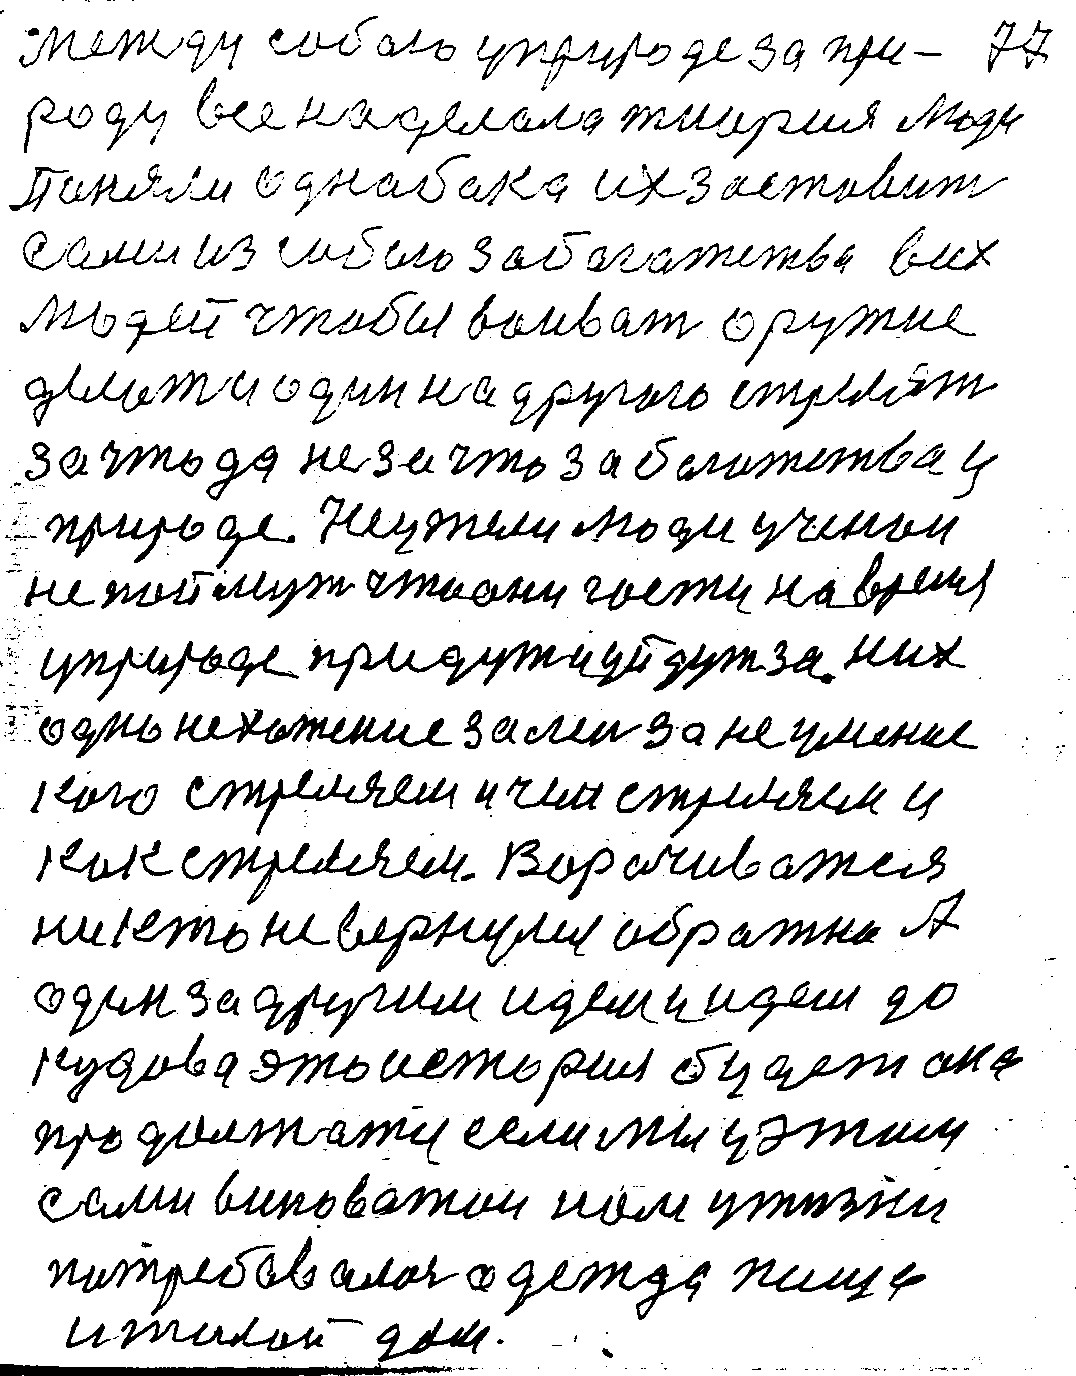 между собою уприроде за при- 77
роду все наделала тиория люди
Поняли однабака их заставит
сами из собою за богатства всих
людей чтобы воиват оружие
делат и один на другого стрелят
за что да не за что за богатства у
природе. Неужели люди учонои
не поймут что они гости на время
уприроде придут и уйдут за. них
одно нехотение зами за неумение
кого стреляем и чем стреляем и
как стреляем. Ворачиватся
никто не вернулся обратно А
один за другим идем и идем до
кудова это история будет она
продолжати если мы у этом
сами виноватои нам у жизни
потребовалас одежда пища
и жилой дом.